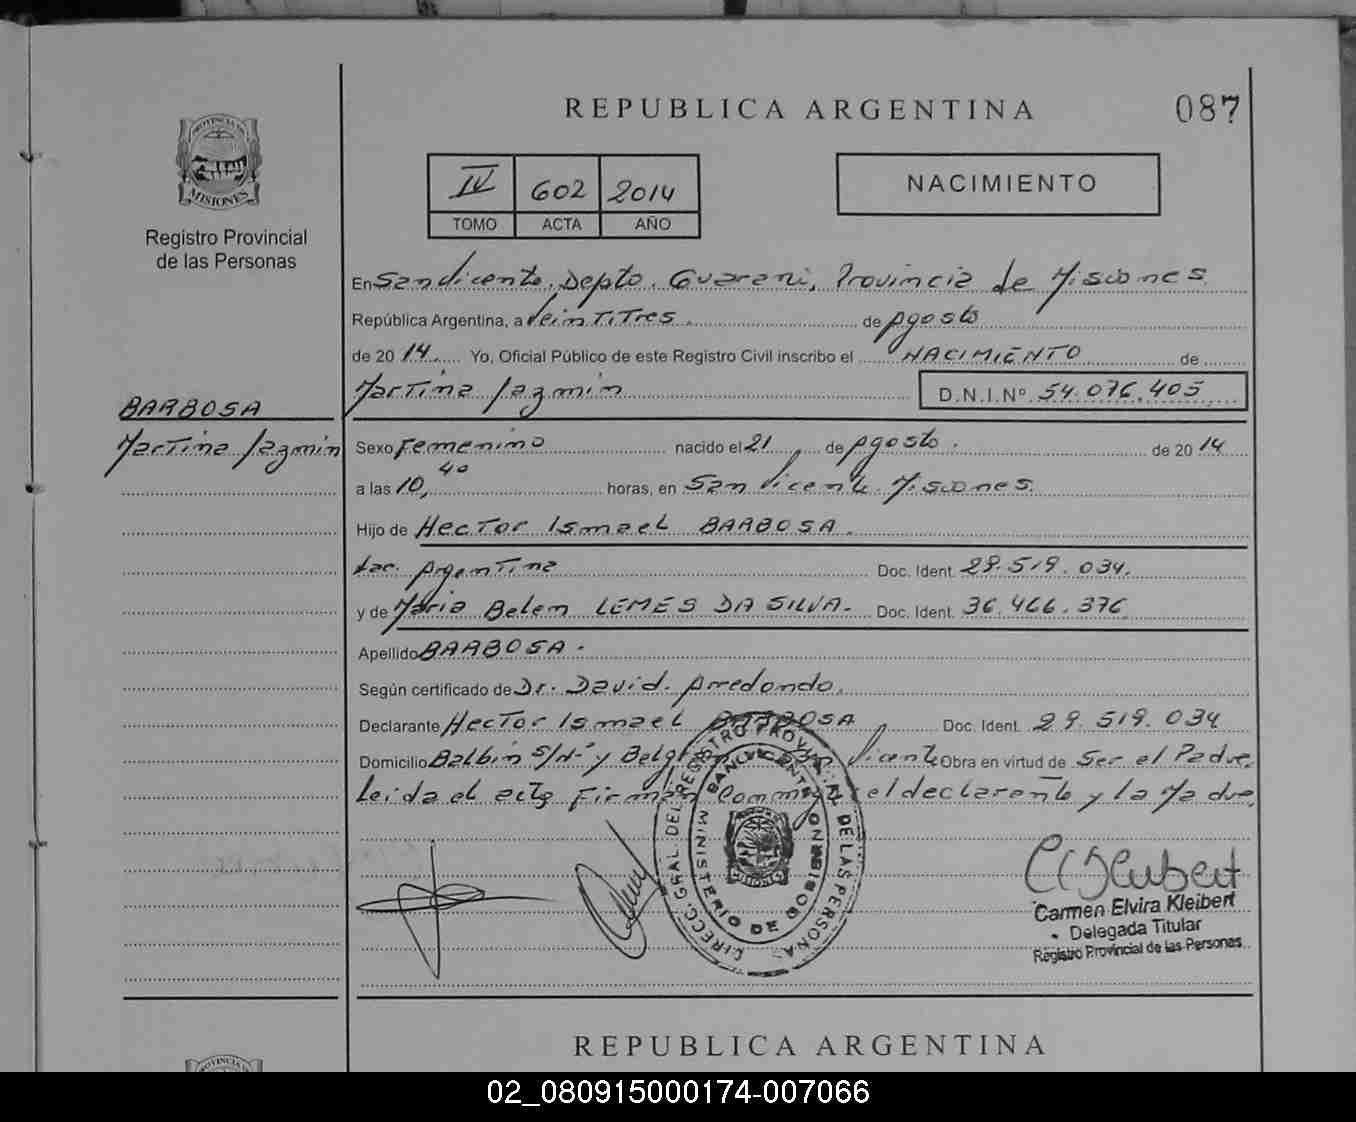 REPUBLICA ARGENTINA
087
PROVINCIA DE
MISIONES
Registro Provincial
de las Personas
IV 602 2014
TOMO ACTA AÑO
NACIMIENTO
En San Vicente, Depto. Guarani, Provincia de Misiones
República Argentina, a veintitres. de Agosto
de 2014. Yo, Oficial Público de este Registro Civil inscribo el NACIMIENTO de
Martina Jazmin D.N.I.Nº 54.076.405
BARBOSA
Martina Jazmin
Sexo Femenino nacido el 21 de Agosto. de 2014
a las 10,40 horas, en San Vicente. Misiones.
Hijo de Hector Ismael BARBOSA.
Nac. Argentina Doc. Ident. 29.519.034.
y de Maria Belen LEMES DA SILVA. Doc. Ident. 36.466.376
Apellido BARBOSA.
Según certificado de Dr. David. Arredondo.
Declarante Hector Ismael BARBOSA Doc. Ident. 29.519.034
Domicilio Balbin S/Nº y San Vicente Obra en virtud de Ser el Padre,
Leida el acta Firman Conmigo el declarante y la Madre,
DIRECC. GRAL. DEL REGISTRO PROVINCIAL DE LAS PERSONAS
SAN VICENTE MISIONES
MINISTERIO DE GOBIERNO
Carmen Elvira Kleibert
Delegada Titular
Registro Provincial de las Personas
REPUBLICA ARGENTINA
PROVINCIA DE
02_080915000174-007066